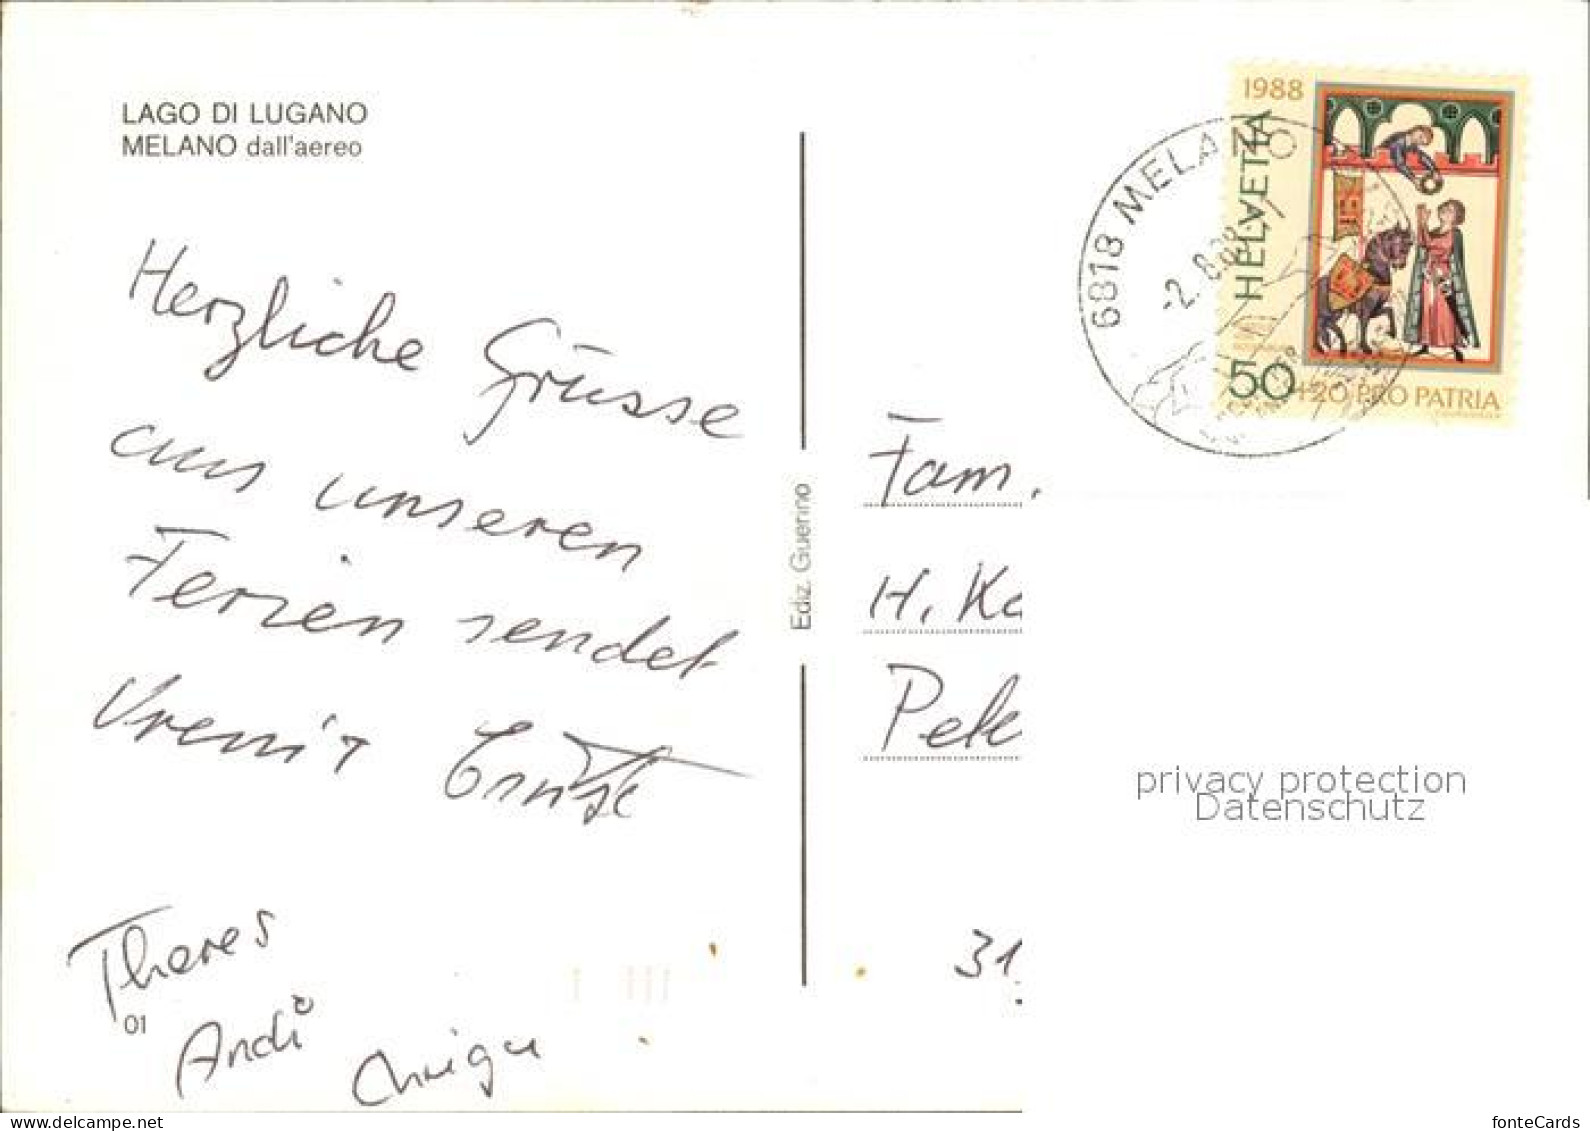 LAGO DI LUGANO
MELANO dall'aereo
Herzliche Grüsse
aus unseren
Ferien sendet
Vreni + Ernst
Theres
01
Andi
Chrigu
Ediz. Guerino
1988
HELVETIA
50+20 PRO PATRIA
6818 MELANO
-2. 8.88
Fam.
H. Ka
Pek
31
privacy protection
Datenschutz
www.delcampe.net
fonteCards